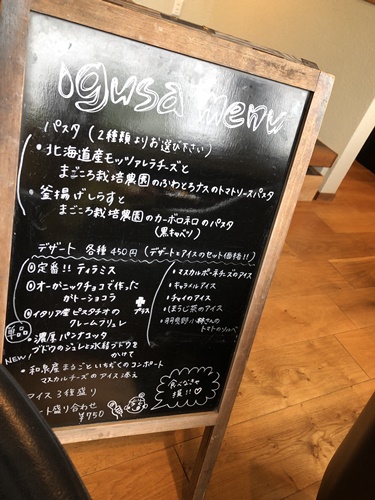 igusa menu
パスタ (2種類よりお選び下さい)
・北海道産モッツァレラチーズと
まごころ栽培農園のふわとろナスのトマトソースパスタ
・釜揚げしらすと
まごころ栽培農園のカーボロネロのパスタ
(黒キャベツ)
デザート 各種450円 (デザートとアイスのセット価格!!)
①定番!! ティラミス
②オーガニックチョコで作った
ガトーショコラ
③イタリア産ピスタチオの
クレームブリュレ
・濃厚パンナコッタ
ブドウのジュレと水稲ブドウを
かけて
単品
NEW!
プラス
・マスカルポーネチーズのアイス
・キャラメルアイス
・チャイのアイス
・ほうじ茶のアイス
トマトのソルベ
・和泉産まるごといちぢくのコンポート
マスカルチーズのアイス添え
アイス3種盛り
ート盛り合わせ
¥750
食べなきゃ
損!!